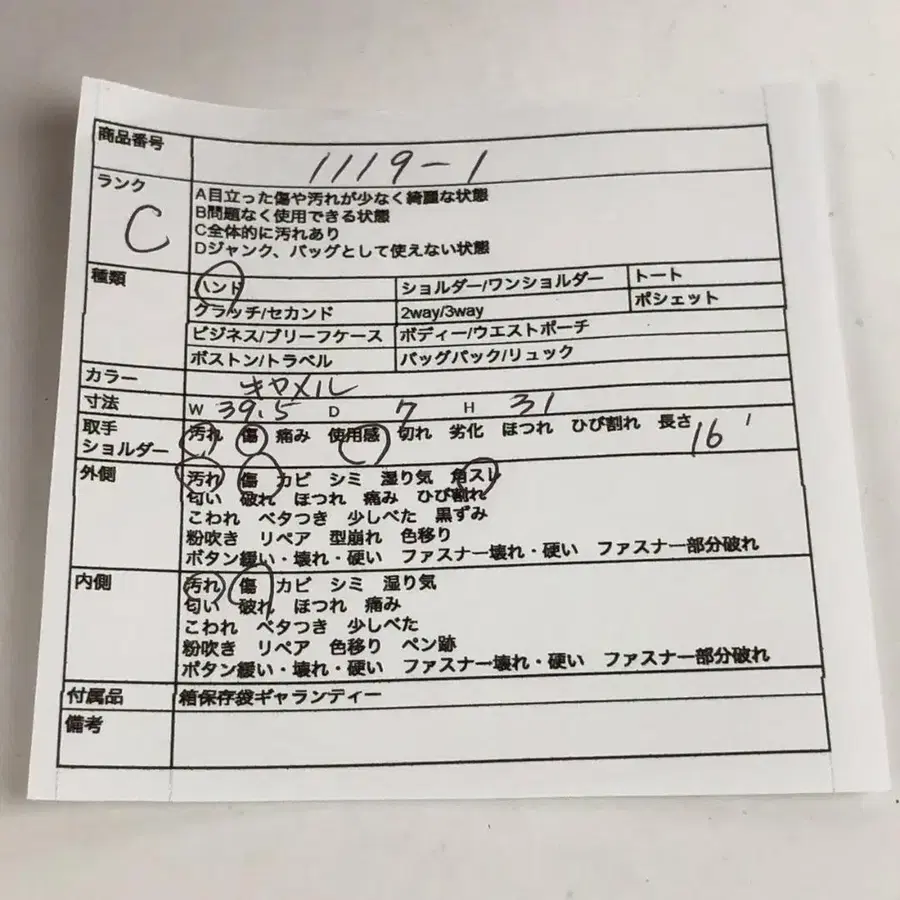 商品番号 1119-1
ランク C
A目立った傷や汚れが少なく綺麗な状態
B問題なく使用できる状態
C全体的に汚れあり
Dジャンク、バッグとして使えない状態
種類 ハンド ショルダー/ワンショルダー トート
クラッチ/セカンド 2way/3way ポシェット
ビジネス/ブリーフケース ボディー/ウエストポーチ
ボストン/トラベル バックパック/リュック
カラー キャメル
寸法 W 39.5 D 7 H 31
取手 ショルダー 汚れ 傷 痛み 使用感 切れ 劣化 ほつれ ひび割れ 長さ 16
外側 汚れ 傷 カビ シミ 湿り気 角スレ
匂い 破れ ほつれ 痛み ひび割れ
こわれ ベタつき 少しべた 黒ずみ
粉吹き リペア 型崩れ 色移り
ボタン緩い・壊れ・硬い ファスナー壊れ・硬い ファスナー部分破れ
内側 汚れ 傷 カビ シミ 湿り気
匂い 破れ ほつれ 痛み
こわれ ベタつき 少しべた
粉吹き リペア 色移り ペン跡
ボタン緩い・壊れ・硬い ファスナー壊れ・硬い ファスナー部分破れ
付属品 箱保存袋ギャランティー
備考